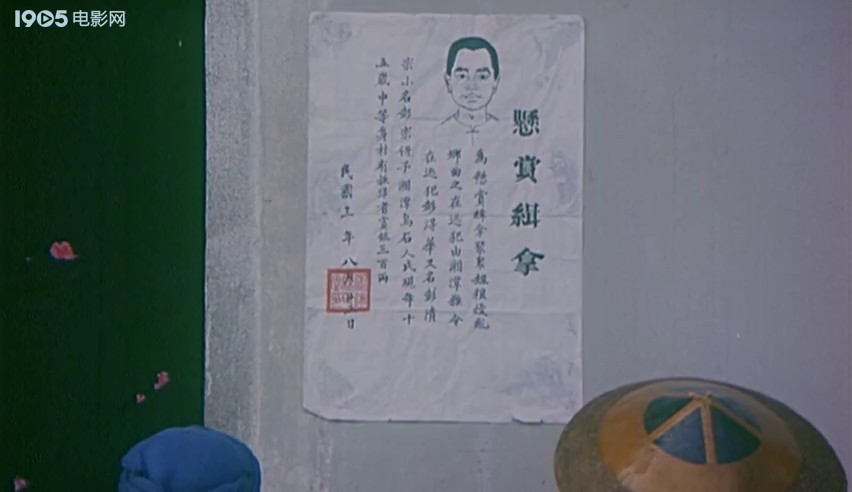 1905电影网
懸賞緝拿
為懸賞緝拿聚眾
鄉曲之在逃犯由湘潭縣令
在逃犯彭得華又名彭清
宗小名彭宗得子湘潭烏石人氏現年十
五歲中等身材有拔绎者賞銀三百兩
民國十一年八月廿五日